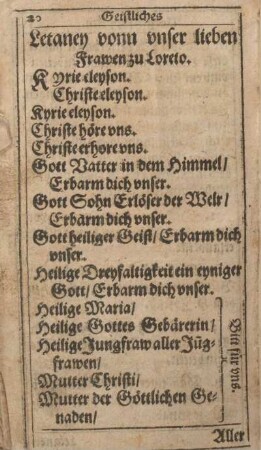 20 Geistliches
Letaney vonn vnser lieben
Frawen zu Loreto.
Kyrie eleyson.
Christe eleyson.
Kyrie eleyson.
Christe höre vns.
Christe erhore vns.
Gott Vatter in dem Himmel/
Erbarm dich vnser.
Gott Sohn Erlöser der Welr/
Erbarm dich vnser.
Gott heiliger Geist/ Erbarm dich
vnser.
Heilige Dreyfaltigkeit ein eyniger
Gott/ Erbarm dich vnser.
Heilige Maria/
Heilige Gottes Gebärerin/
Heilige Jungfraw aller Jūg-
frawen/
Mutter Christi/
Mutter der Göttlichen Ge-
naden/
Bitt für vns.
Aller